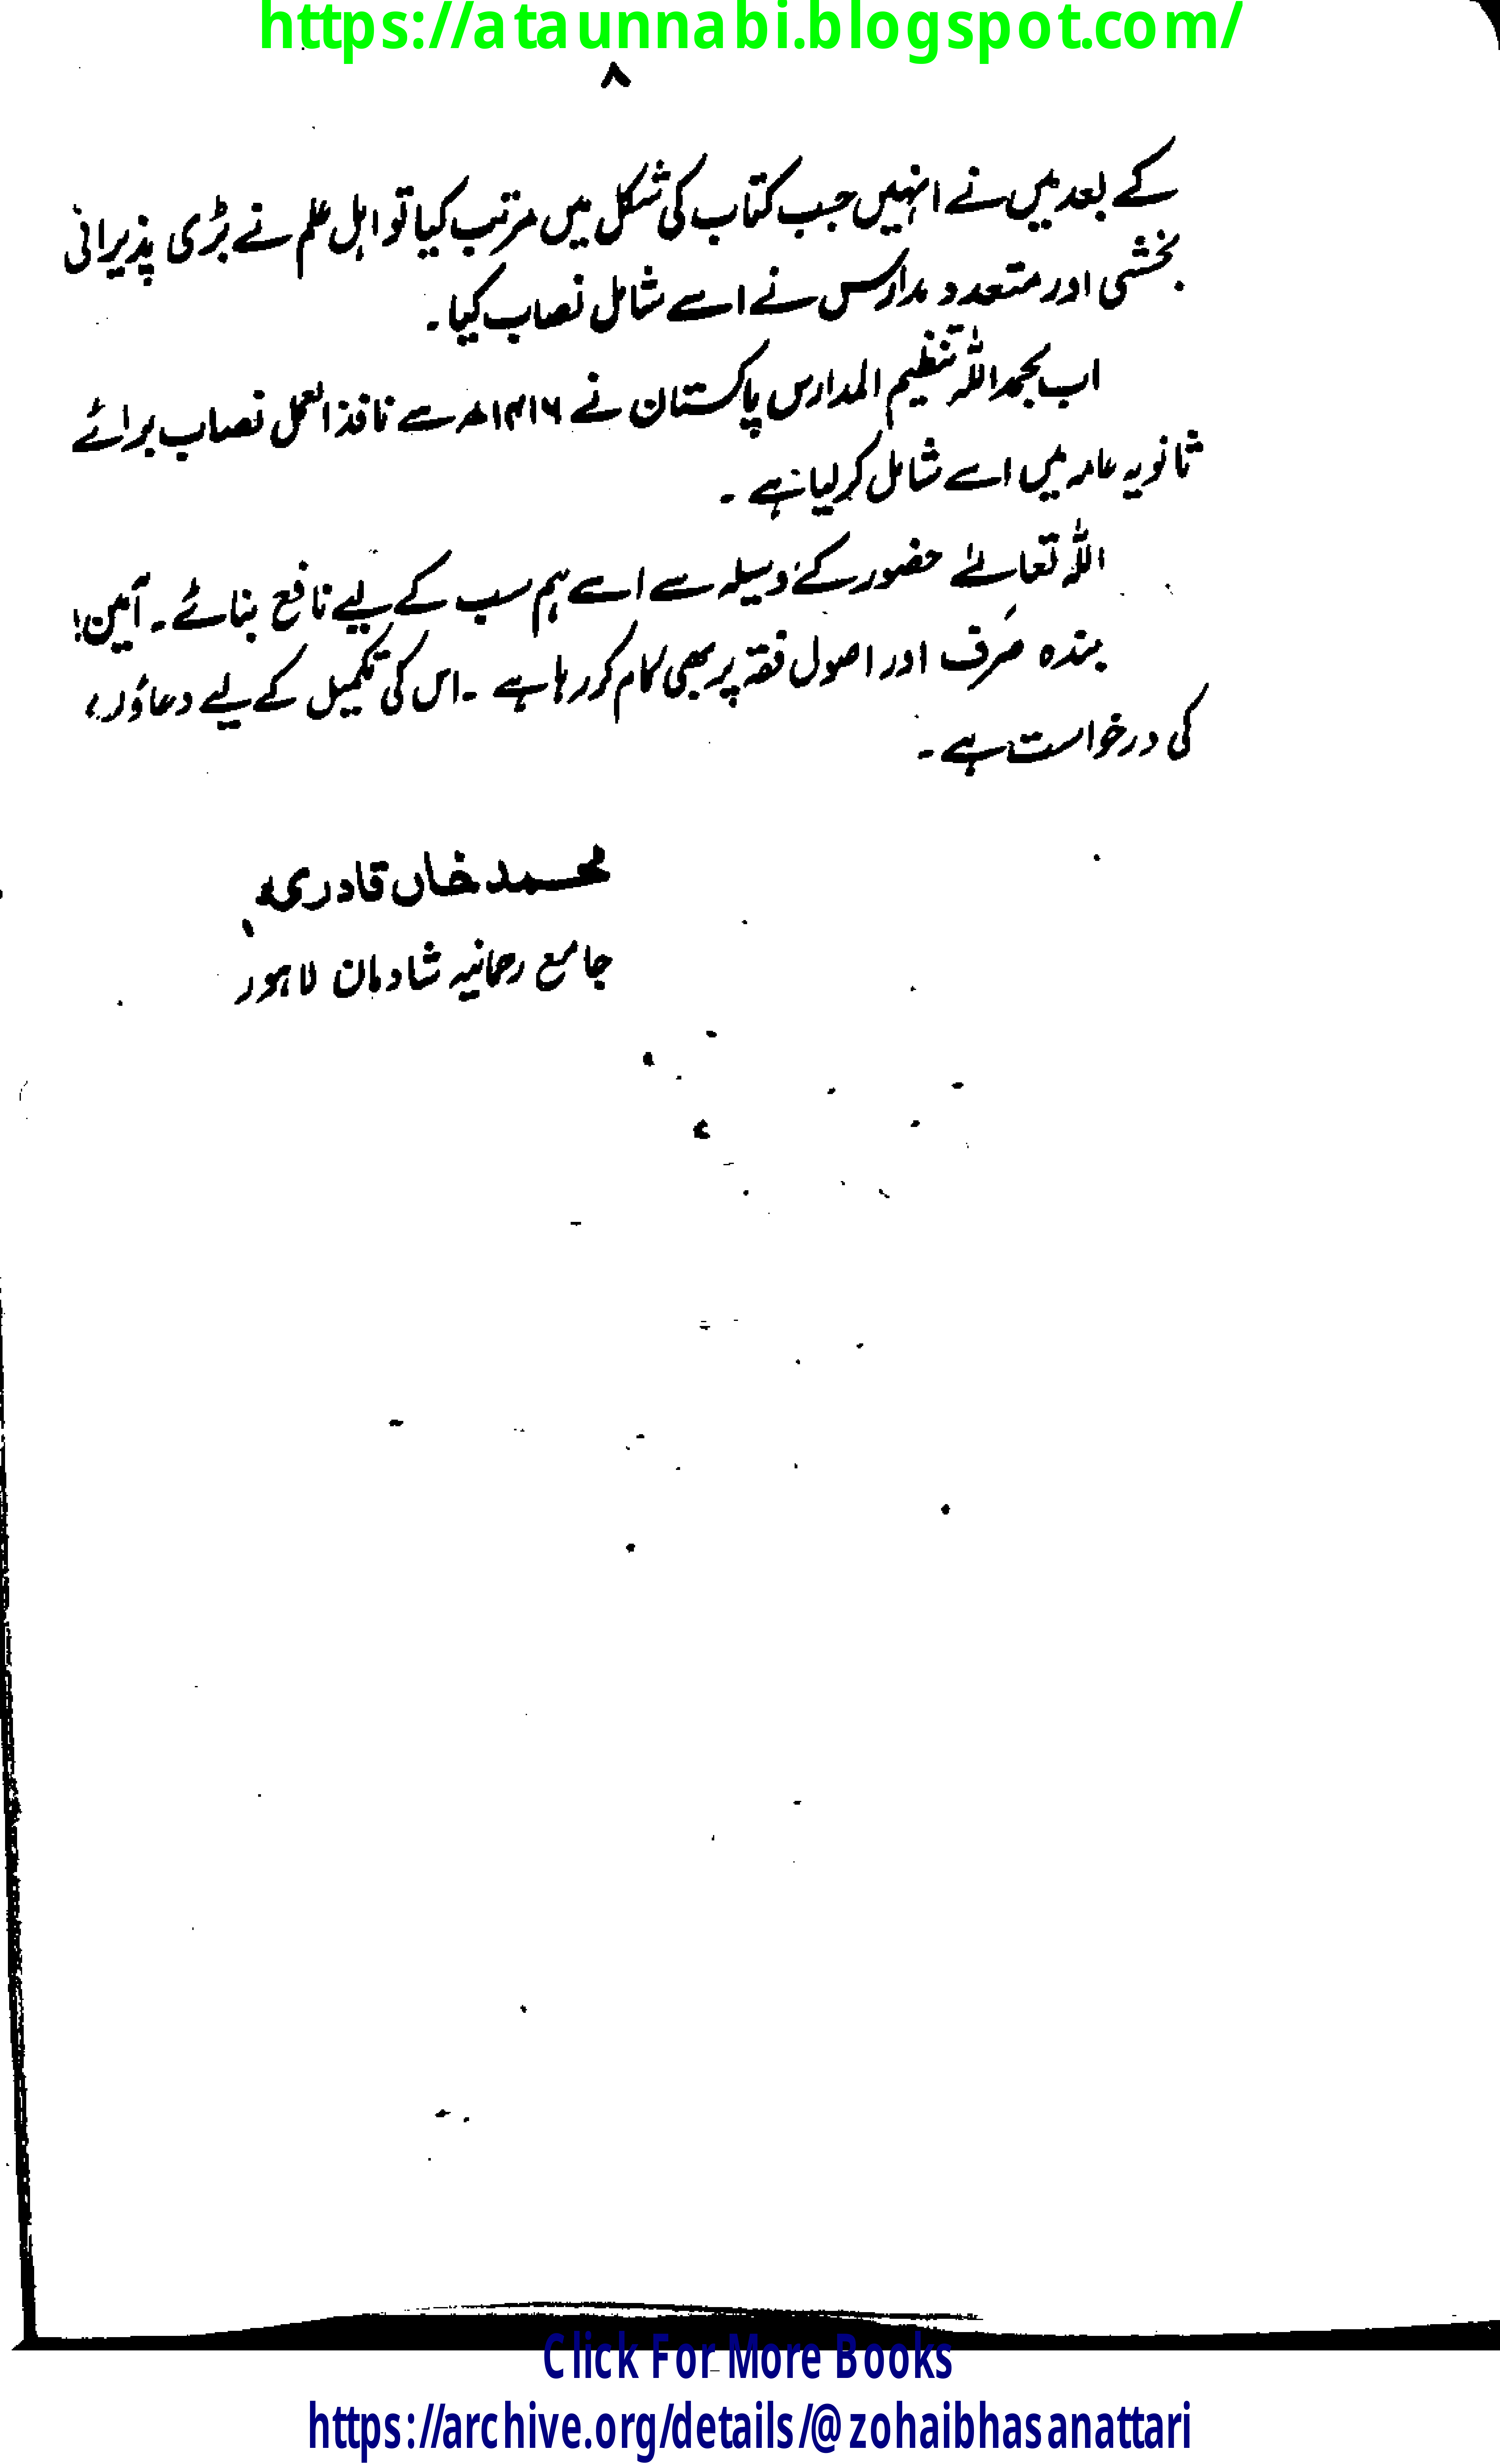 https://ataunnabi.blogspot.com/
۸
کے بعد میں نے انہیں جب کتاب کی شکل میں مرتب کیا تو اہل علم نے بڑی پذیرائی
بخشی اور متعدد مدارس نے اسے شامل نصاب کیا۔
اب بحمد اللہ تنظیم المدارس پاکستان نے ۱۴۱۶ھ سے نافذ العمل نصاب برائے
ثانویہ عامہ میں اسے شامل کر لیا ہے۔
اللہ تعالےٰ حضور کے وسیلہ سے اسے ہم سب کے لیے نافع بنائے۔ آمین!
بندہ صَرف اور اصول فقہ پر بھی کام کر رہا ہے۔ اس کی تکمیل کے لیے دعاؤں
کی درخواست ہے۔
محمد خاں قادری
جامع رحمانیہ شادمان لاہور
Click For More Books
https://archive.org/details/@zohaibhasanattari